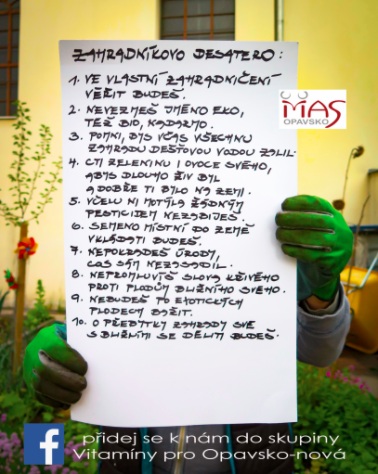 ZAHRADNÍKOVO DESATERO:
1. VE VLASTNÍ ZAHRADNIČENÍ
VĚŘIT BUDEŠ.
2. NEVEZMEŠ JMÉNO EKO,
TÉŽ BIO, NADARMO.
3. POMNI, ABYS VČAS VŠECHNU
ZAHRADU DEŠŤOVOU VODOU ZALIL.
4. CTI ZELENINU I OVOCE SVÉHO,
ABYS DLOUHO ŽIV BYL
A DOBŘE TI BYLO NA ZEMI.
5. VČELU NI MOTÝLA ŽÁDNÝM
PESTICIDEM NEZABIJEŠ.
6. SEMENO MÍSTNÍ DO ZEMĚ
VKLÁDATI BUDEŠ.
7. NEPOKRADEŠ ÚRODY,
COS SÁM NEZASADIL.
8. NEPROMLUVÍŠ SLOVA KŘIVÉHO
PROTI PLODŮM BLIŽNÍHO SVÉHO.
9. NEBUDEŠ PO EXOTICKÝCH
PLODECH BAŽIT.
10. O PŘEBYTKY ZAHRADY SVÉ
S BLIŽNÍMI SE DĚLITI BUDEŠ.
MAS
OPAVSKO
f přidej se k nám do skupiny
Vitamíny pro Opavsko-nová